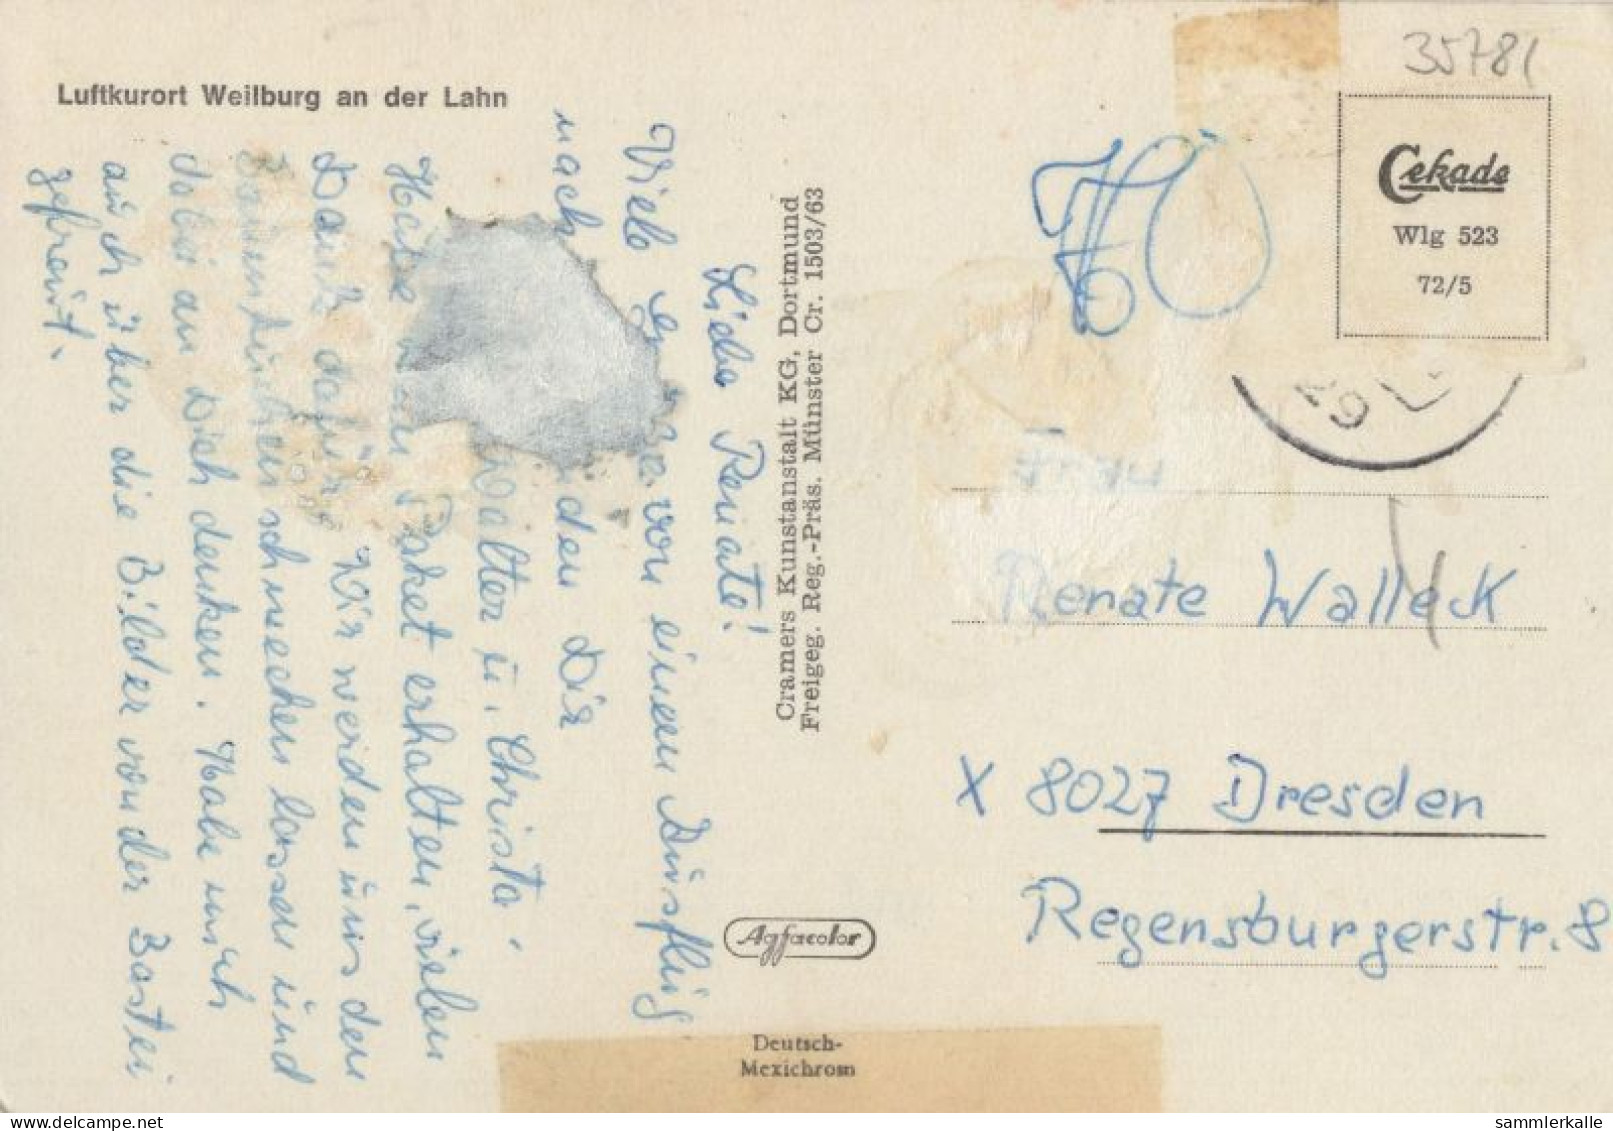 Luftkurort Weilburg an der Lahn
Liebe Renate!
Viele von einem Ausflug
nach Dir
Walter u. Christa.
Habe Paket erhalten, vielen
Dank dafür. Wir werden uns den
schmecken lassen und
dabei an Dich denken. Habe mich
auch über die Bilder von der Bastei
gefreut.
Cramers Kunstanstalt KG, Dortmund
Freigeg. Reg.-Präs. Münster Cr. 1503/63
Agfacolor
Deutsch-
Mexichrom
35781
Cekade
Wlg 523
72/5
29
Renate Walleck
X 8027 Dresden
Regensburgerstr. 8
sammlerkalle